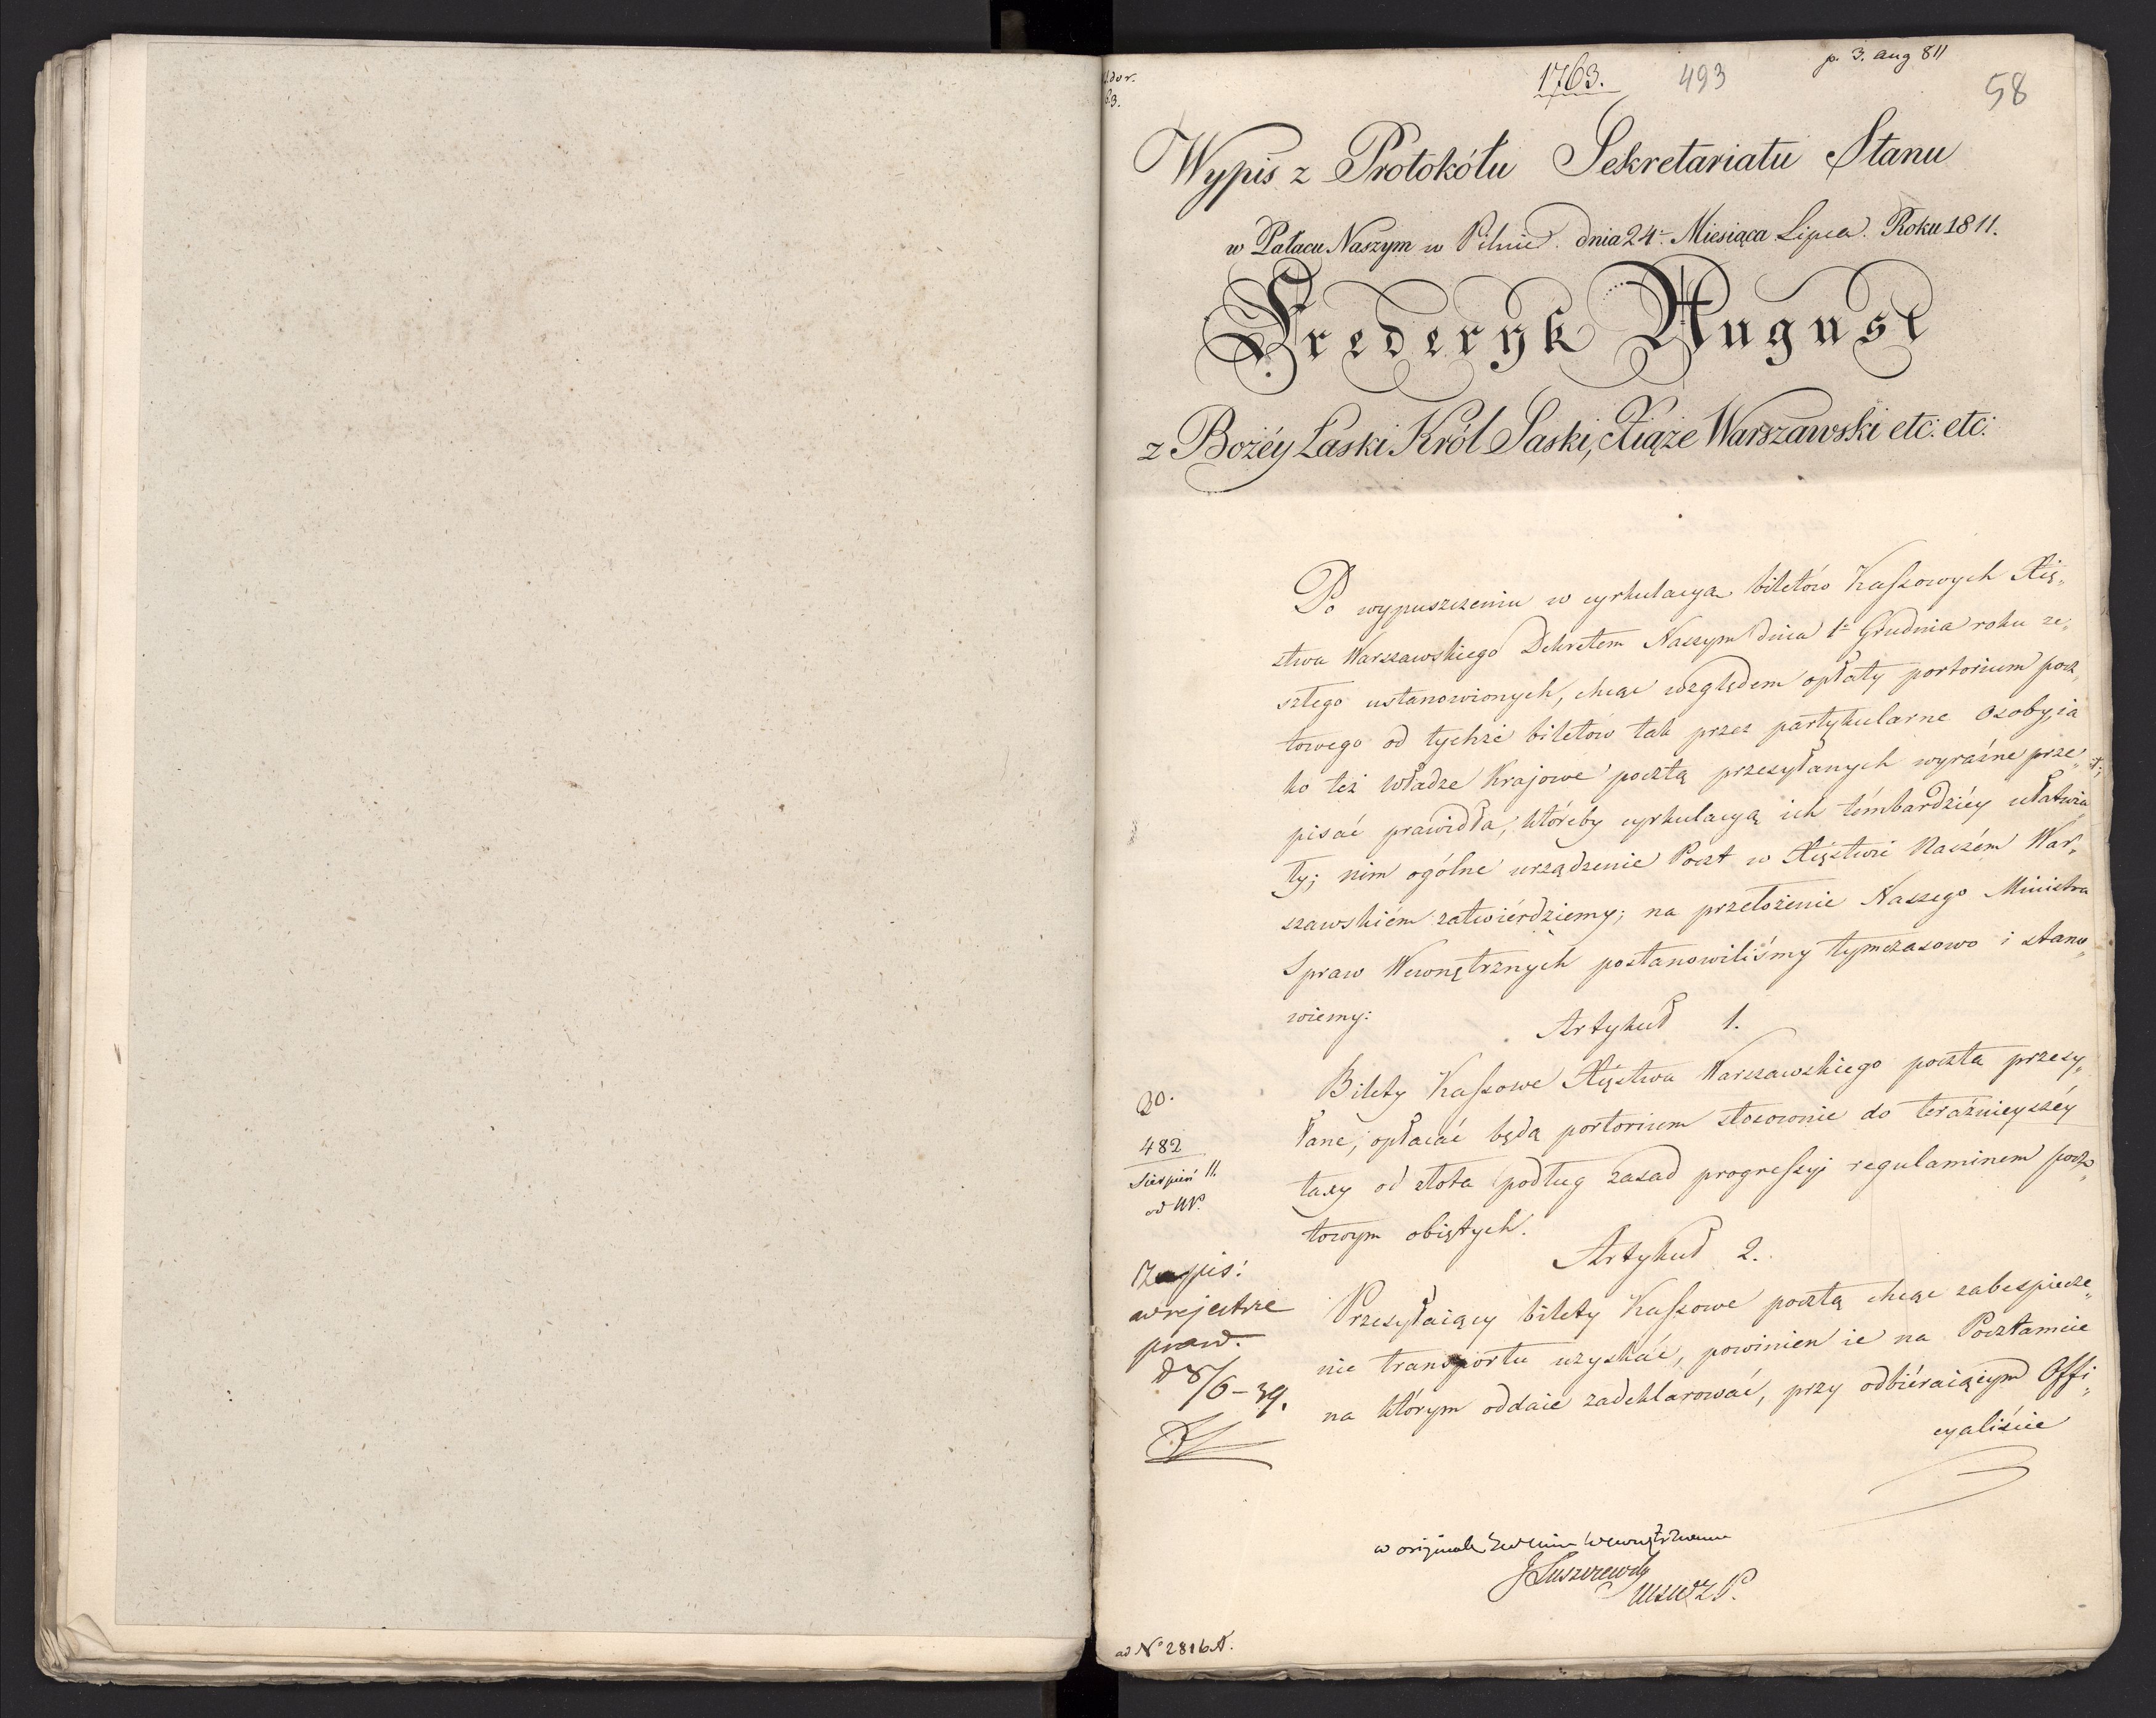 p. 3. aug 811
1763. 493 58
Wypis z Protokółu Sekretariatu Stanu
w Pałacu Naszym w Pilnic dnia 24. Miesiąca Lipca Roku 1811.
Frederyk August
z Bożéy Łaski Król Saski, Xiąże Warszawski etc: etc:
Po wypuszczeniu w cyrkulacyą biletów Kassowych Xię„
stwa Warszawskiego Dekretem Naszym dnia 1. Grudnia roku ze„
szłego ustanowionych, chcąc względem opłaty portorium pocz„
towego od tychże biletów tak przez partykularne osoby, ia
ko też Władze Krajowe pocztą przesyłanych wyraźne prze„
pisać prawidła, któreby cyrkulacyą ich témbardziéy ułatwia
ły; nim ogólne urządzenie Poczt w Xięstwie Naszém War„
szawskiém zatwiérdziemy; na przełożenie Naszego Ministra
Spraw Wewnętrznych postanowiliśmy tymczasowo i stano„
wiemy:
Artykuł 1.
Bilety Kassowe Xięstwa Warszawskiego pocztą przesy„
łane, opłacać będą portorium stosownie do teraźnieyszéy
taxy od złota podług zasad progressyi regulaminem pocz„
towym obiętych.
Artykuł 2.
Przesyłaiący bilety Kassowe pocztą chcąc zabespiecze„
nie transportu uzyskać, powinien ie na Pocztamcie
na którym oddaie zadeklarować, przy odbiéraiącym Offi„
cyaliście
482
Sierpień 11.
w rejestrze
praw.
d 8/6 – 39.
w originale
J Łuszczewsky
ad N° 2816 A.